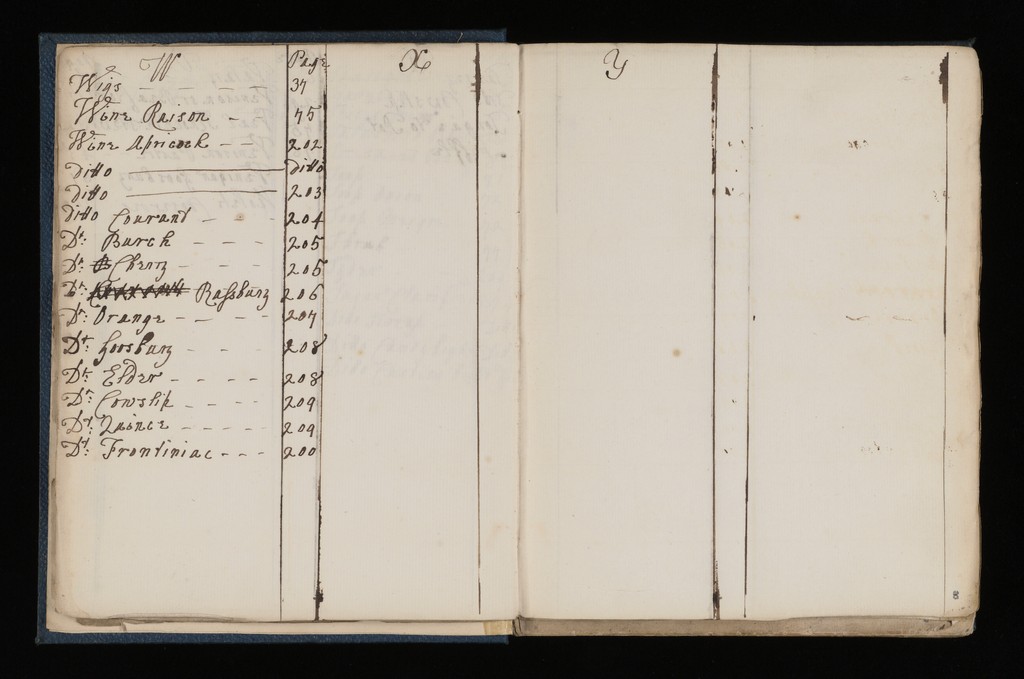 W Page
Wigs - - - - - 37
Wine Raison - 45
Wine Apricock - - 202
Ditto Ditto
Ditto 203
Ditto Courant - - - 204
Do: Burch - - - - 205
Do: Cherry - - - - 205
Do: Rassbury 206
Do: Orange - - - - - 207
Do: Goosbury - - - - 208
Do: Elder - - - - 208
Do: Cowslip - - - - 209
Do: Quince - - - - - 209
Do: Frontiniac - - - 200
X
Y
8